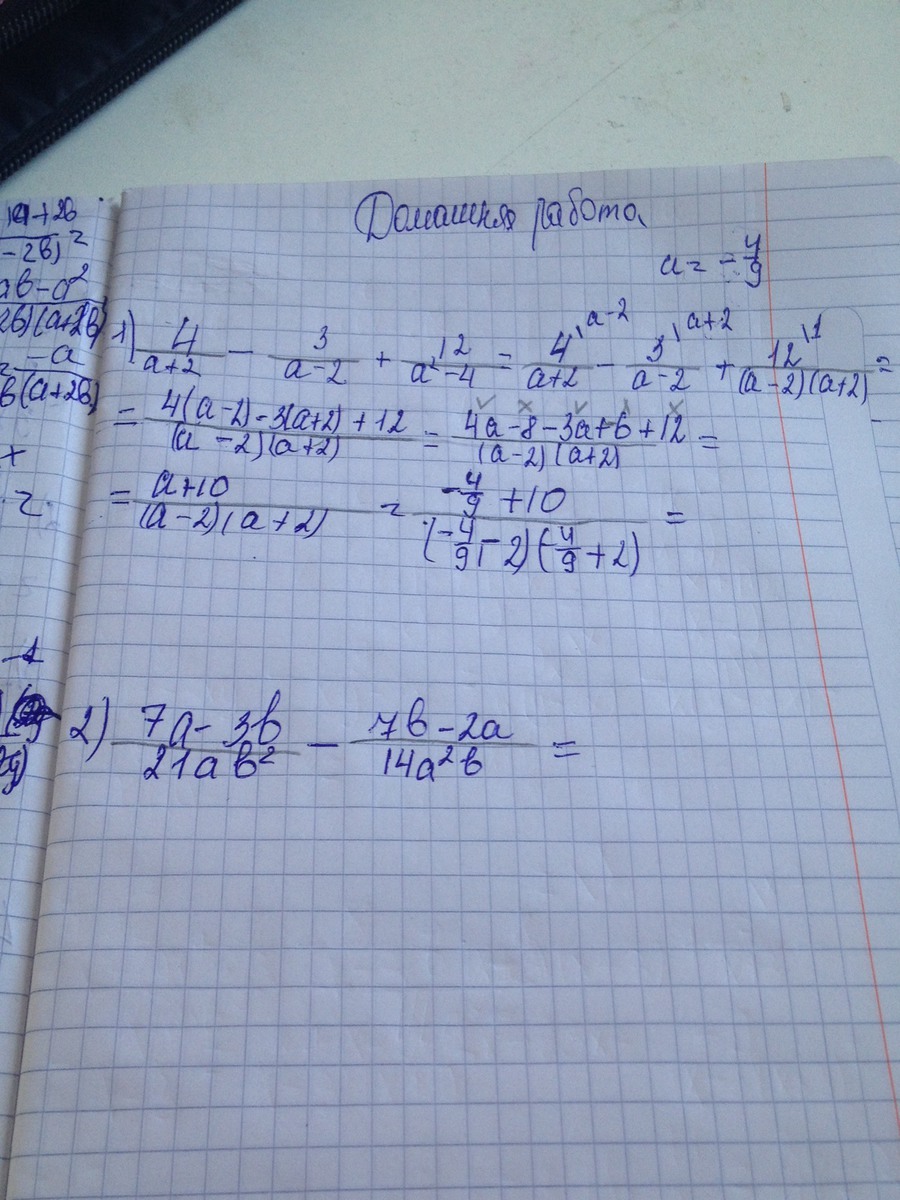 a+2b
-2b)²
ab-a²
2b)(a+2b)
= -a
b(a+2b)
+
-1
Домашняя работа
a = -4/9
1) 4/(a+2) - 3/(a-2) + 12/(a²-4) = 4\a-2/(a+2) - 3\a+2/(a-2) + 12\1/((a-2)(a+2)) =
= (4(a-2)-3(a+2)+12)/((a-2)(a+2)) = (4a-8-3a+6+12)/((a-2)(a+2)) =
= (a+10)/((a-2)(a+2)) = (-4/9+10)/((-4/9-2)(-4/9+2)) =
2) (7a-3b)/(21ab²) - (7b-2a)/(14a²b) =